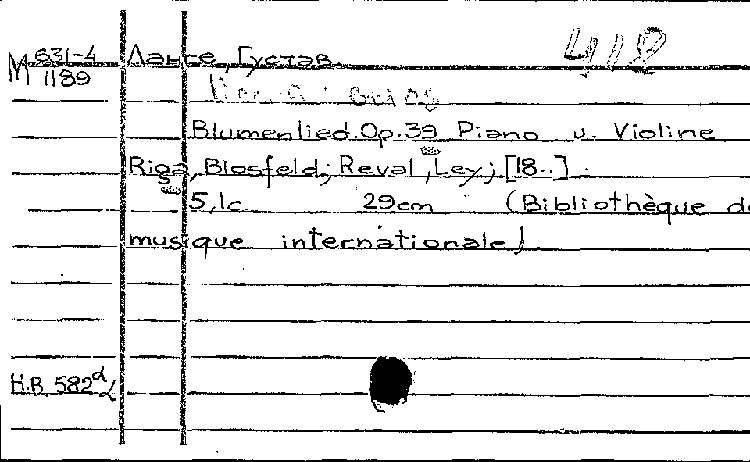 M 631-4
1189
Ланге, Густав.
418
Blumenlied. Op. 39 Piano u. Violine
Riga, Blosfeld; Reval, Ley; [18..]
5,1c 29cm (Bibliothèque de
musique internationale)
H.B. 582α